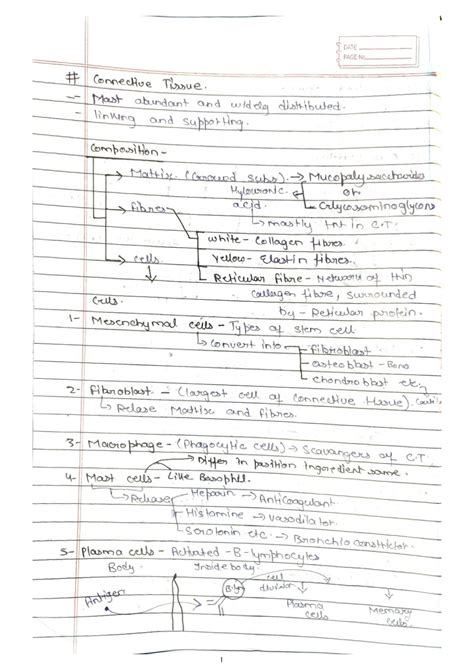 DATE
PAGE No.
# Connective Tissue.
- Most abundant and widely distributed.
- linking and supporting.
Composition -
Matrix (Ground Subs) → Mucopolysaccharides
Hyluronic or
acid. Glycosominoglycans
mostly
in C.T.
fibres
white - Collagen fibres
Yellow - Elastin fibres.
cells
Reticular fibre - Network of thin
Collagen fibre, surrounded
by - Reticular protein.
Cells.
1- Mesenchymal cells - Types of stem cell
Convert into fibroblast
osteoblast - Bone
chondroblast etc.
2- Fibroblast - (largest cell of Connective tissue).
Relase Matrix and fibres.
3- Macrophage - (Phagocytic cells) → Scavangers of C.T.
Differ in position Ingredient same.
4- Mast cells - Like Basophil.
Release Heparin → Anticoagulant
Histamine → Vasodilator
Serotonin etc. → Bronchio constrictor.
5- Plasma cells - Activated - B-lymphocytes
Body. Inside body.
Antigen
cell
division
Plasma
cells
Memory
cells
1